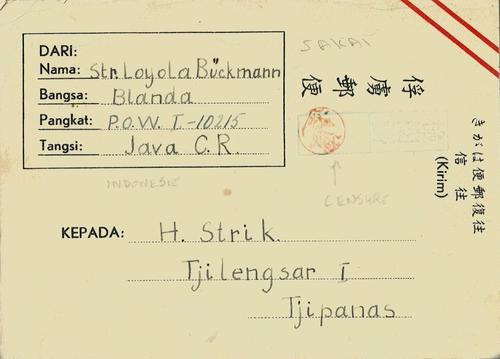 DARI:
Nama: Str. Loyola Bückmann
Bangsa: Blanda
Pangkat: P.O.W. I-10215
Tangsi: Java C.R.
SAKAI
俘虜郵便
CENSURE
INDONESIE
往復郵便はがき
往信
(Kirim)
KEPADA: H. Strik.
Tjilengsar I
Tjipanas